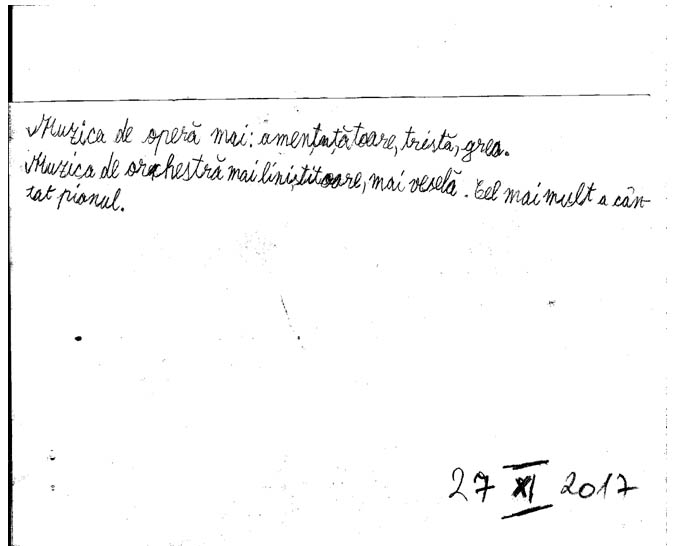 Muzica de operă mai: amențățătoare, tristă, grea.
Muzica de orchestră mai liniștitoare, mai veselă. Cel mai mult a cân-
tat pianul.
27 XI 2017